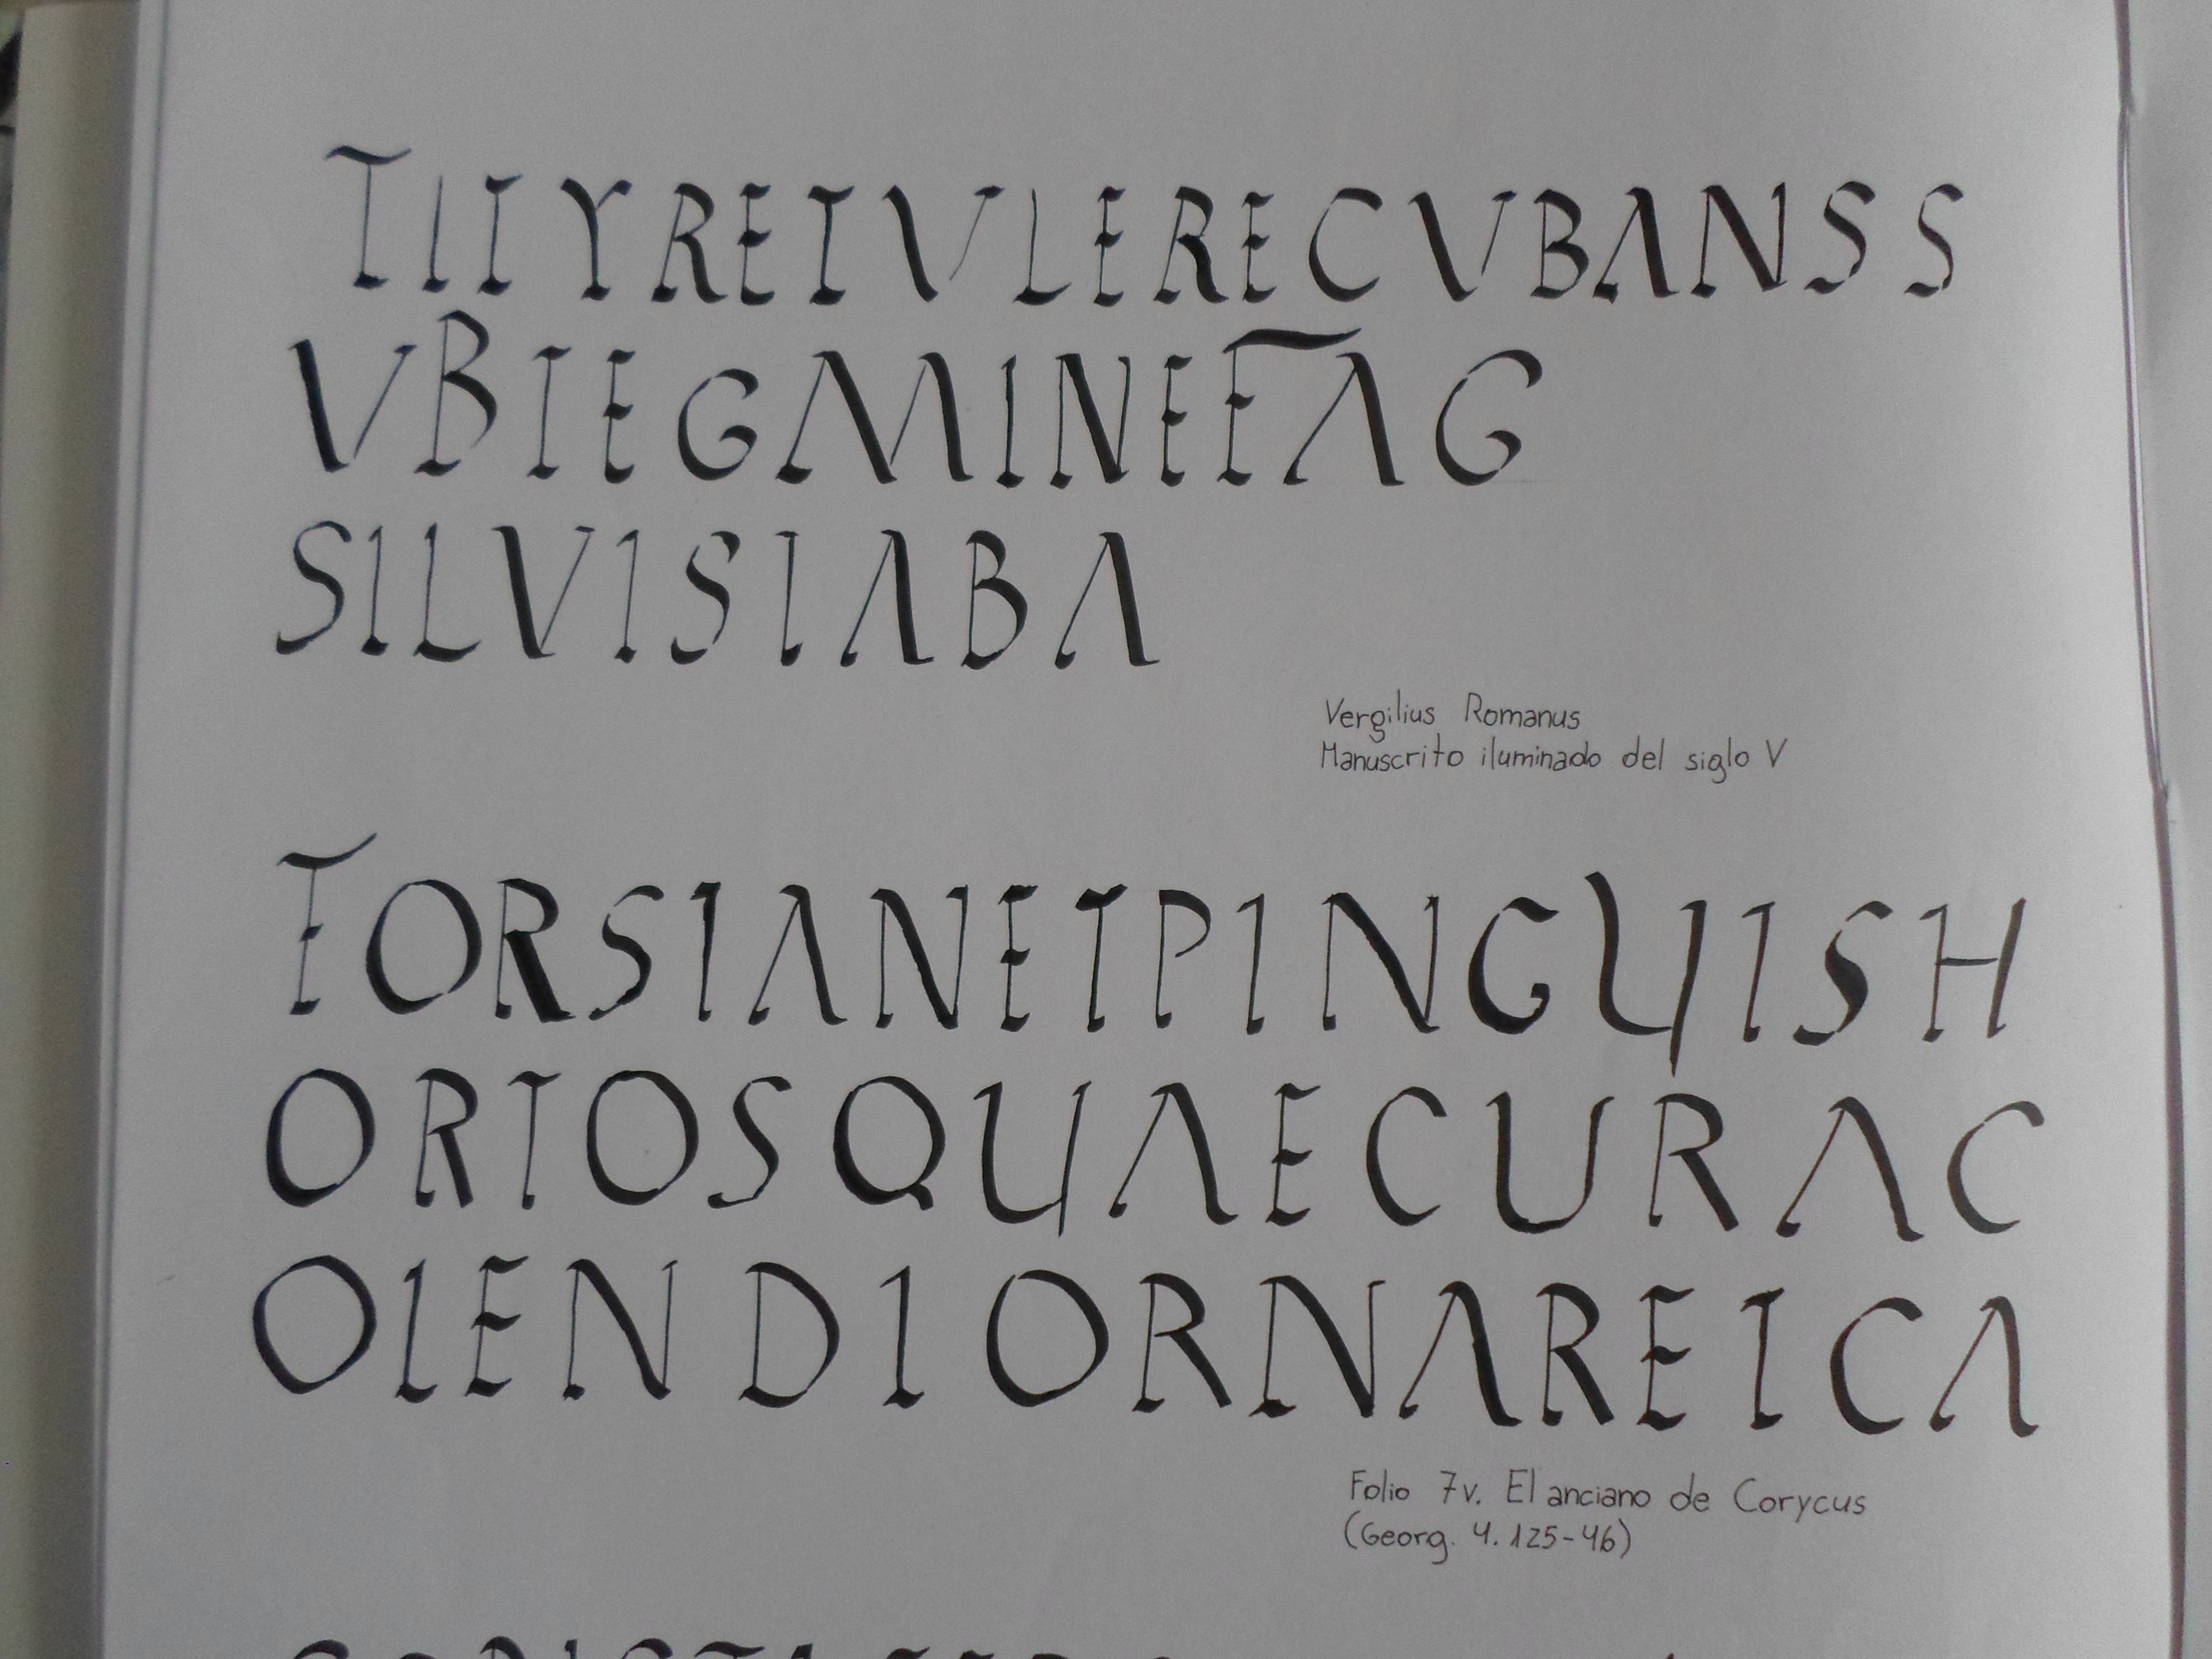 TITYRETVLERECVBANSS
VBTEGMINEFAG
SILVISIABA
Vergilius Romanus
Manuscrito iluminado del siglo V
FORSIANETPINGUISH
ORTOSQUAECURAC
OLENDIORNARETCA
Folio 7v. El anciano de Corycus
(Georg. 4. 125-46)